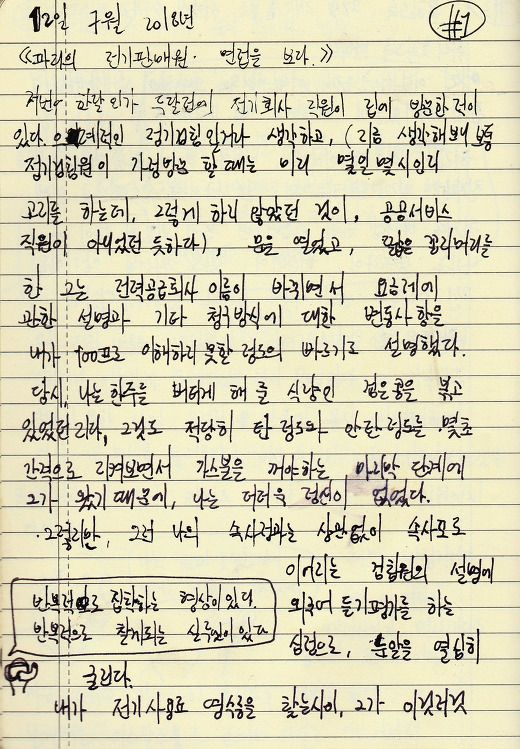 12일 7월 2018년
#1
《파리의 전기판매원. 면접을 보다.》
저번에 한달인가 두달전에 전기회사 직원이 집에 방문한적이
있다. 으레적인 점검원일거라 생각하고, (지금 생각해보니 보통
점검검침원이 가정방문 할때는 미리 몇일 몇시인지
고지를 하는데, 그렇게 하지 않았던 것이, 공공서비스
직원이 아니었던 듯하다), 문을 열었고, 짧은 꽁지머리를
한 그는 전력공급회사 이름이 바뀌면서 요금제에
관한 설명과 기타 청구방식에 대한 변동사항을
내가 100프로 이해하지 못할 정도의 빠르기로 설명했다.
당시, 나는 한주를 버티게 해 줄 식량인 검은콩을 볶고
있었던지라, 그것도 적당히 탄 정도와 안탄 정도를 몇초
간격으로 지켜보면서 가스불을 꺼야하는 마지막 단계에
그가 왔기 때문에, 나는 더더욱 정신이 없었다.
그렇지만, 그런 나의 속사정과는 상관없이 속사포로
이어지는 검침원의 설명에
외국어 듣기평가를 하는
심정으로, 눈알을 열심히
굴린다.
반복적으로 집착하는 형상이 있다.
반복적으로 참게되는 실루엣이 있다
내가 전기사용료 영수증을 찾는사이, 그가 이것저것